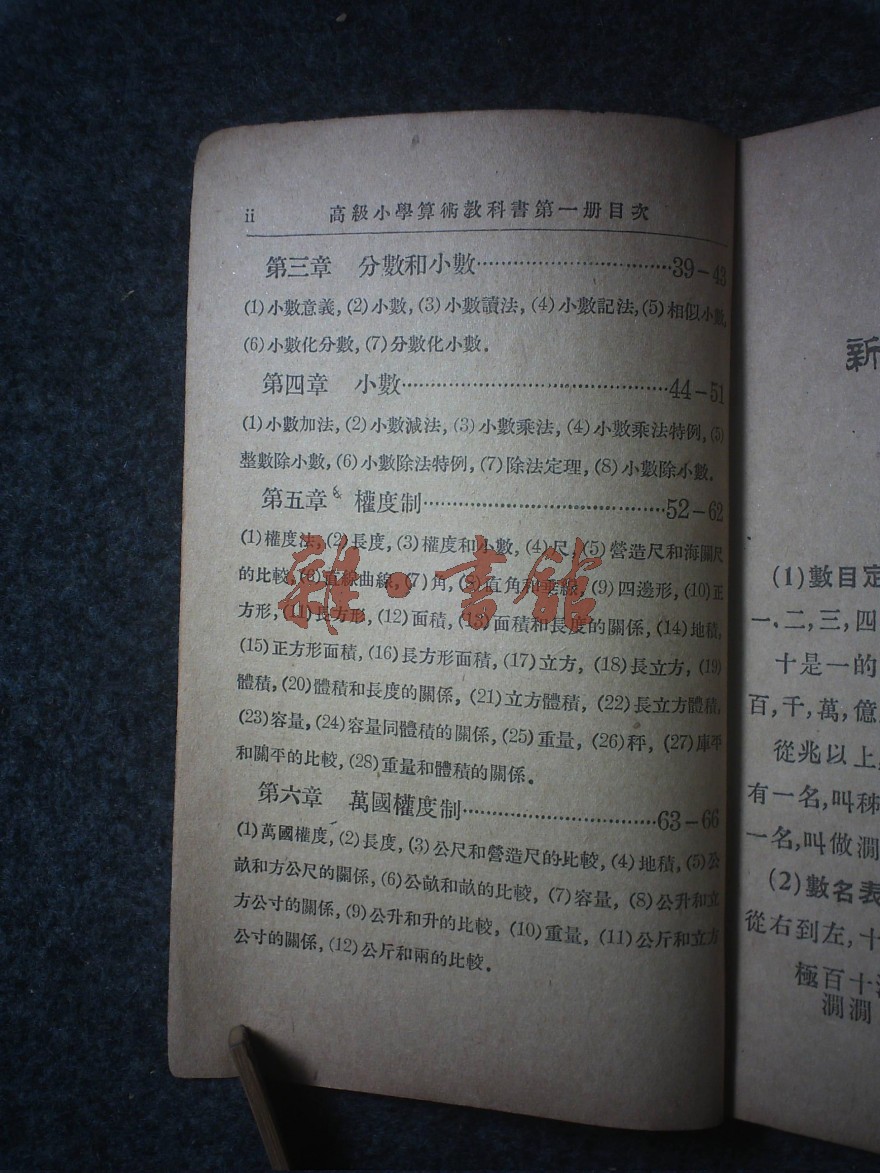 ii 高級小學算術教科書第一册目次
第三章 分數和小數……………………39-43
(1)小數意義,(2)小數,(3)小數讀法,(4)小數記法,(5)相似小數,
(6)小數化分數,(7)分數化小數.
第四章 小數……………………44-51
(1)小數加法,(2)小數減法,(3)小數乘法,(4)小數乘法特例,(5)
整數除小數,(6)小數除法特例,(7)除法定理,(8)小數除小數.
第五章 權度制……………………52-62
(1)權度法,(2)長度,(3)權度和小數,(4)尺,(5)營造尺和海關尺
的比較,(6)直線曲線,(7)角,(8)直角和垂線,(9)四邊形,(10)正
方形,(11)長方形,(12)面積,(13)面積和長度的關係,(14)地積,
(15)正方形面積,(16)長方形面積,(17)立方,(18)長立方,(19)
體積,(20)體積和長度的關係,(21)立方體積,(22)長立方體積,
(23)容量,(24)容量同體積的關係,(25)重量,(26)秤,(27)庫平
和關平的比較,(28)重量和體積的關係.
第六章 萬國權度制……………………63-66
(1)萬國權度,(2)長度,(3)公尺和營造尺的比較,(4)地積,(5)公
畝和方公尺的關係,(6)公畝和畝的比較,(7)容量,(8)公升和立
方公寸的關係,(9)公升和升的比較,(10)重量,(11)公斤和立方
公寸的關係,(12)公斤和兩的比較.
雜·書館
新
(1)數目定
一,二,三,四
十是一的
百,千,萬,億
從兆以上,
有一名,叫秭
一名,叫做澗
(2)數名表
從右到左,十
極百十
澗澗